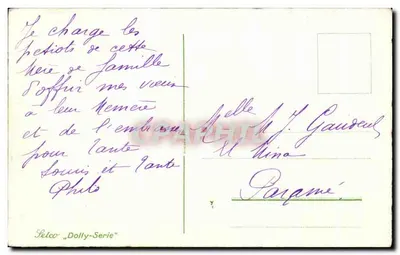 Je charge les
petiots de cette
Mère de famille
d'offrir mes vœux
à leur Mémère
et de l'embrasser
pour Tante
Louis et Tante
Philo
Melle M J. Gaudeul
Et Nina
Paramé.
"Dolly-Serie"